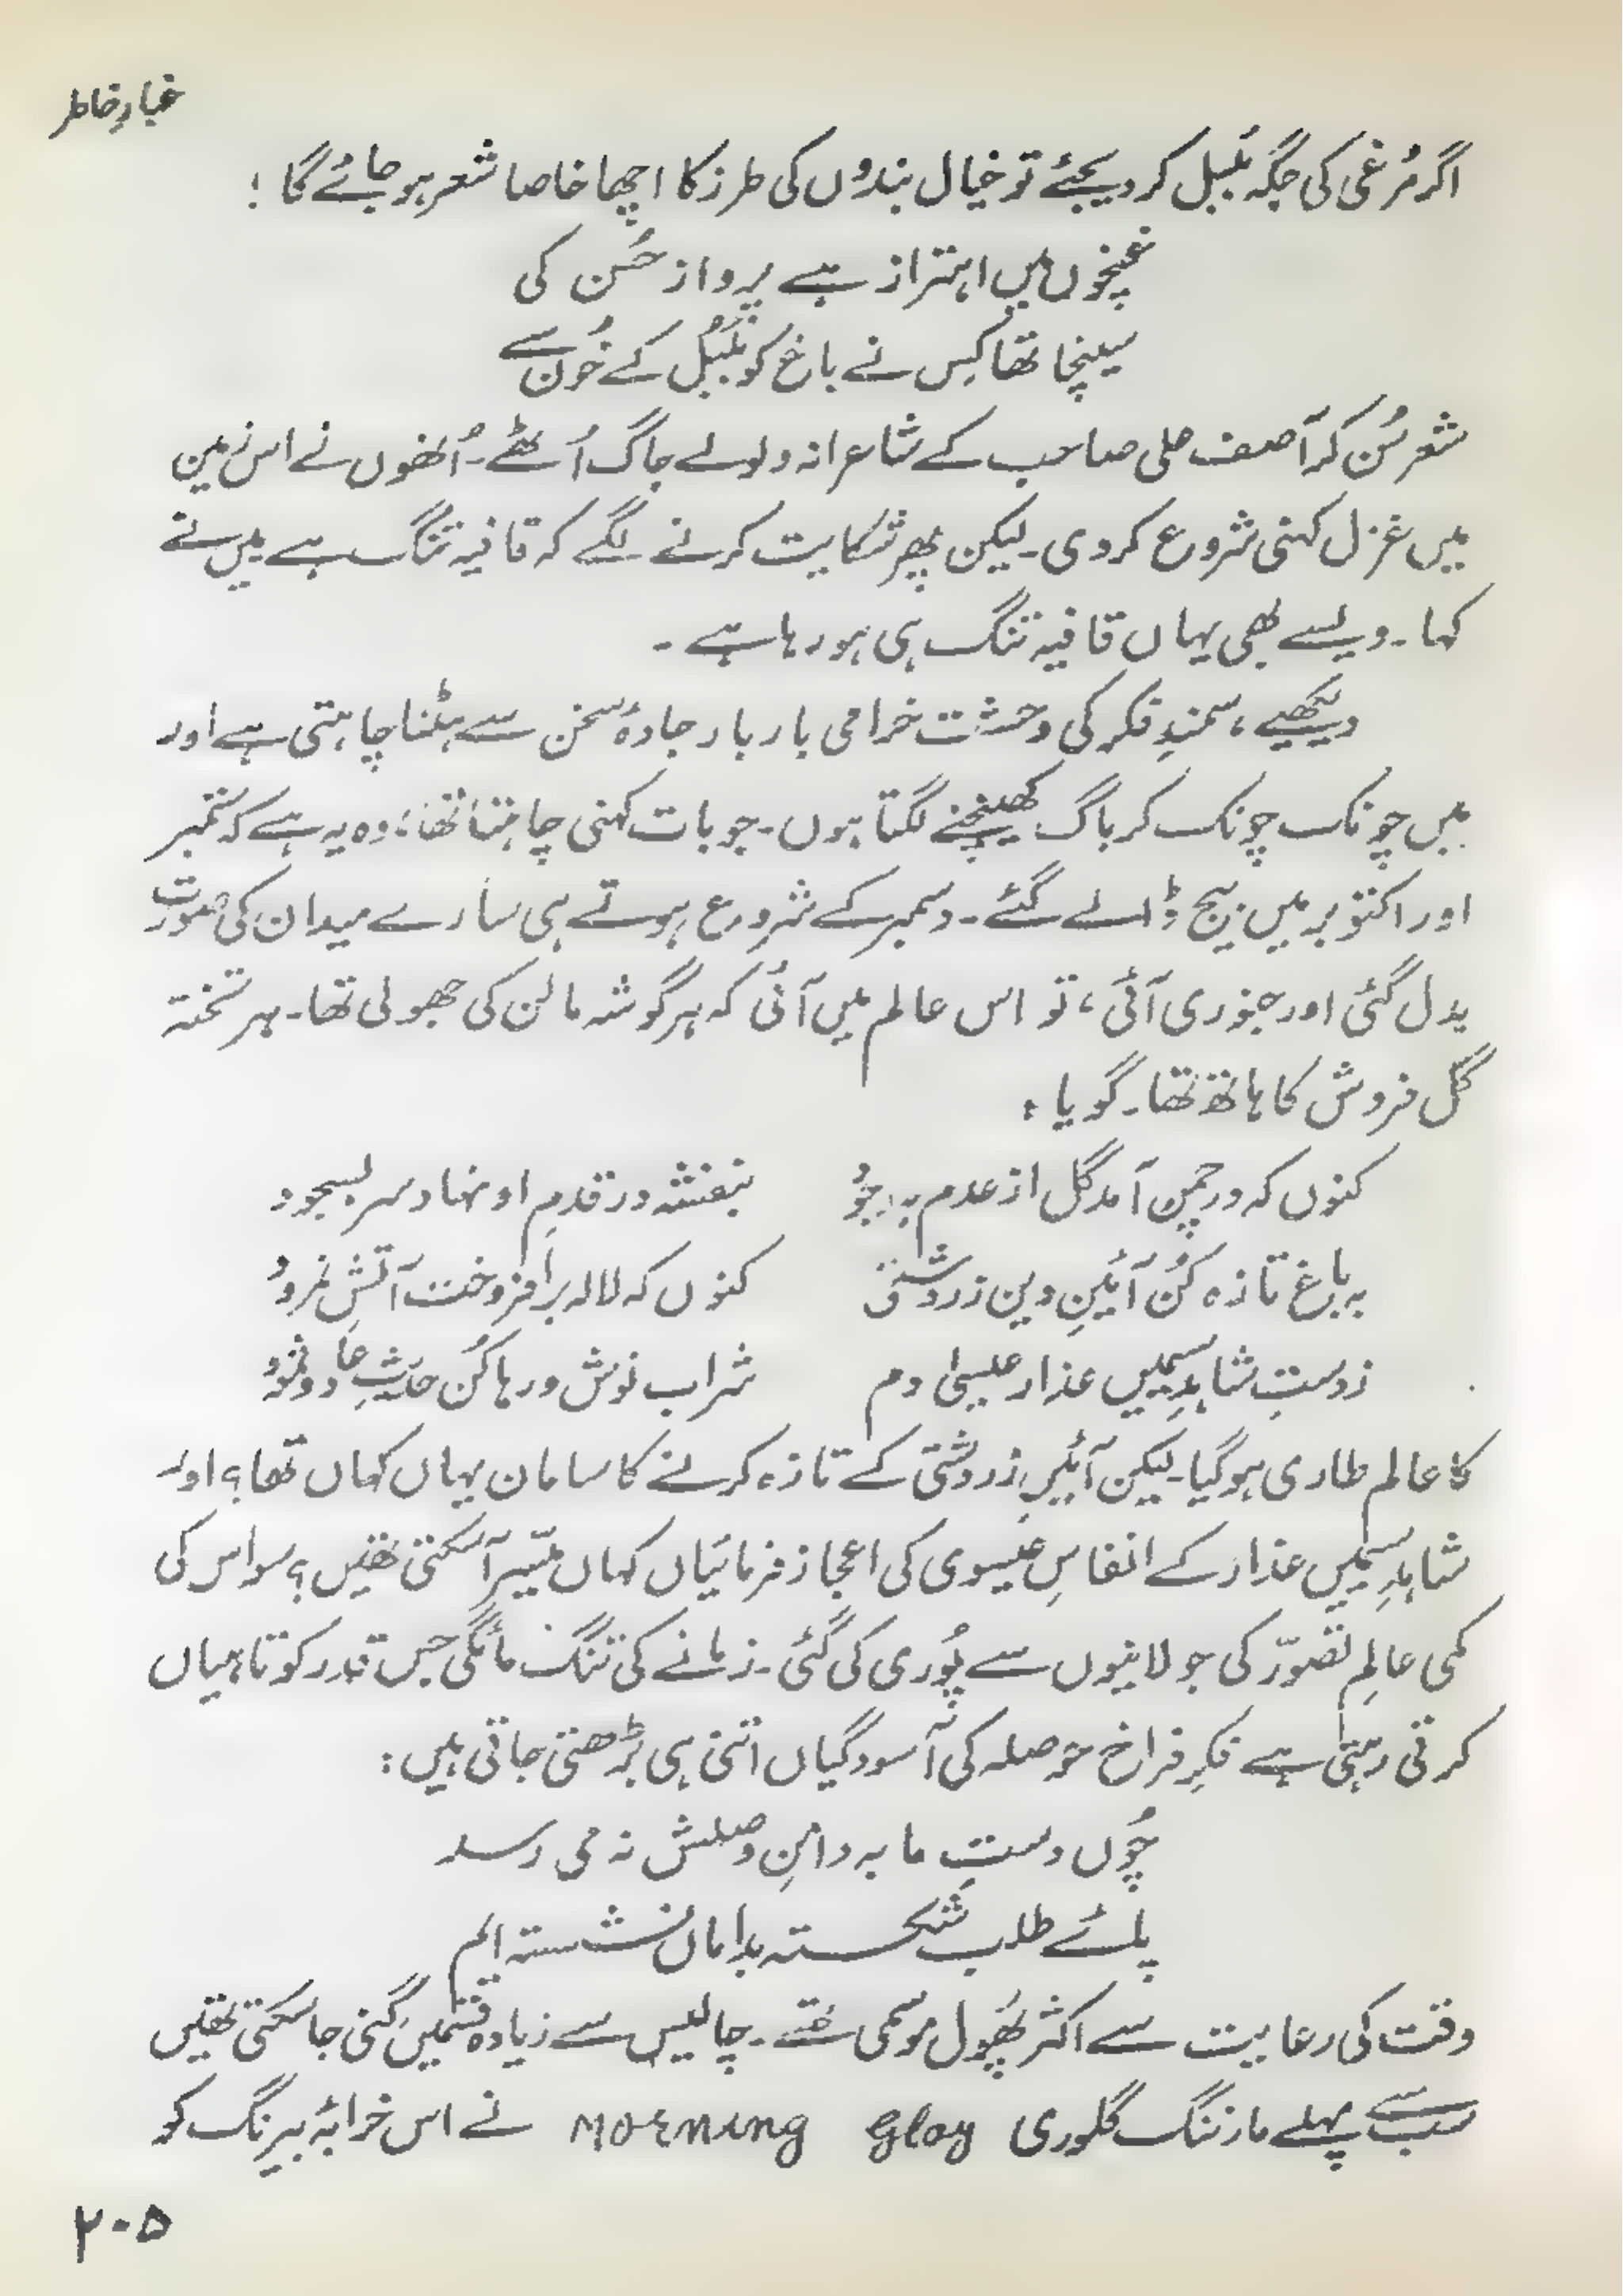 غبارِ خاطر
اگر مُرغی کی جگہ بُلبل کر دیجئے تو خیال بندوں کی طرز کا اچھا خاصا شعر ہو جائے گا !
غنچوں میں اہتزاز ہے پرواز حُسن کی
سینچا تھا کِس نے باغ کو بُلبُل کے خُون سے
شعر سُن کر آصف علی صاحب کے شاعرانہ ولولے جاگ اُٹھے۔ اُنھوں نے اس زمین
میں غزل کہنی شروع کر دی۔ لیکن پھر شکایت کرنے لگے کہ قافیہ تنگ ہے میں نے
کہا۔ ویسے بھی یہاں قافیہ تنگ ہی ہو رہا ہے ۔
دیکھیے ، سمندِ فکر کی وحشت خرامی بار بار جادۂ سخن سے ہٹنا چاہتی ہے اور
میں چونک چونک کر باگ کھینچنے لگتا ہوں۔ جو بات کہنی چاہتا تھا، وہ یہ ہے کہ ستمبر
اور اکتوبر میں بیج ڈالے گئے۔ دسمبر کے شروع ہوتے ہی سارے میدان کی صورت
بدل گئی اور جنوری آئی ، تو اس عالم میں آئی کہ ہر گوشہ مالن کی جھولی تھا۔ ہر تختہ
گل فروش کا ہاتھ تھا۔ گویا :
کنوں کہ در چمن آمد گل از عدم بہ وجوُد بنفشہ در قدمِ او نہاد سر بسجود
بہ باغ تازہ کُن آئینِ دین زردشتی کنوں کہ لالہ برافروخت آتشِ نمرود
ز دستِ شاہدِ سیمیں عذار عیسیٰ دم شراب نوش و رہا کُن حدیثِ عاد و ثمود
کا عالم طاری ہو گیا۔ لیکن آئینِ زردشتی کے تازہ کرنے کا سامان یہاں کہاں تھا؟ اور
شاہدِ سیمیں عذار کے انفاسِ عیسوی کی اعجاز فرمائیاں کہاں میّسر آ سکتی تھیں ؟ سو اس کی
کمی عالمِ تصوّر کی جولانیوں سے پُوری کی گئی۔ زمانے کی تنگ مائگی جس قدر کوتاہیاں
کرتی رہتی ہے فکرِ فراخ حوصلہ کی آسودگیاں اتنی ہی بڑھتی جاتی ہیں :
چُوں دستِ ما بہ دامنِ وصلش نہ می رسد
پائے طلب شکستہ بداماں نشستہ ایم
وقت کی رعایت سے اکثر پھُول موسمی تھے۔ چالیس سے زیادہ قسمیں گنی جا سکتی تھیں
سب سے پہلے مارننگ گلوری Morning Gloy نے اس خرابۂ بیرنگ کو
۲۰۵